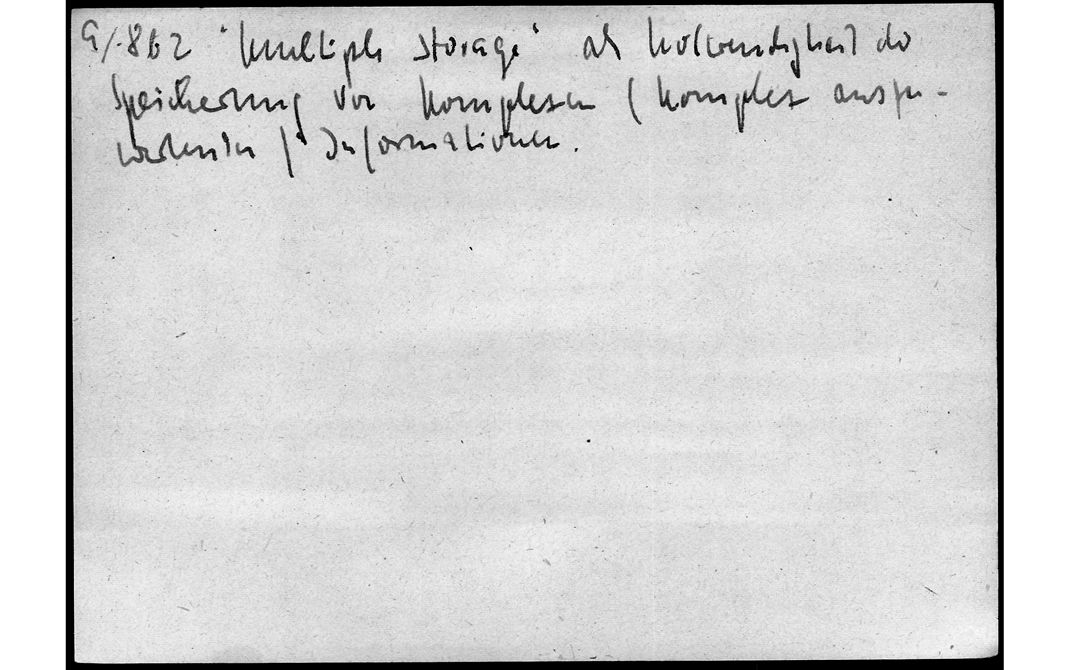 9/8b2 "multiple storage" als Notwendigkeit der
Speicherung von komplexen (komplex auszu-
wertenden) Informationen.